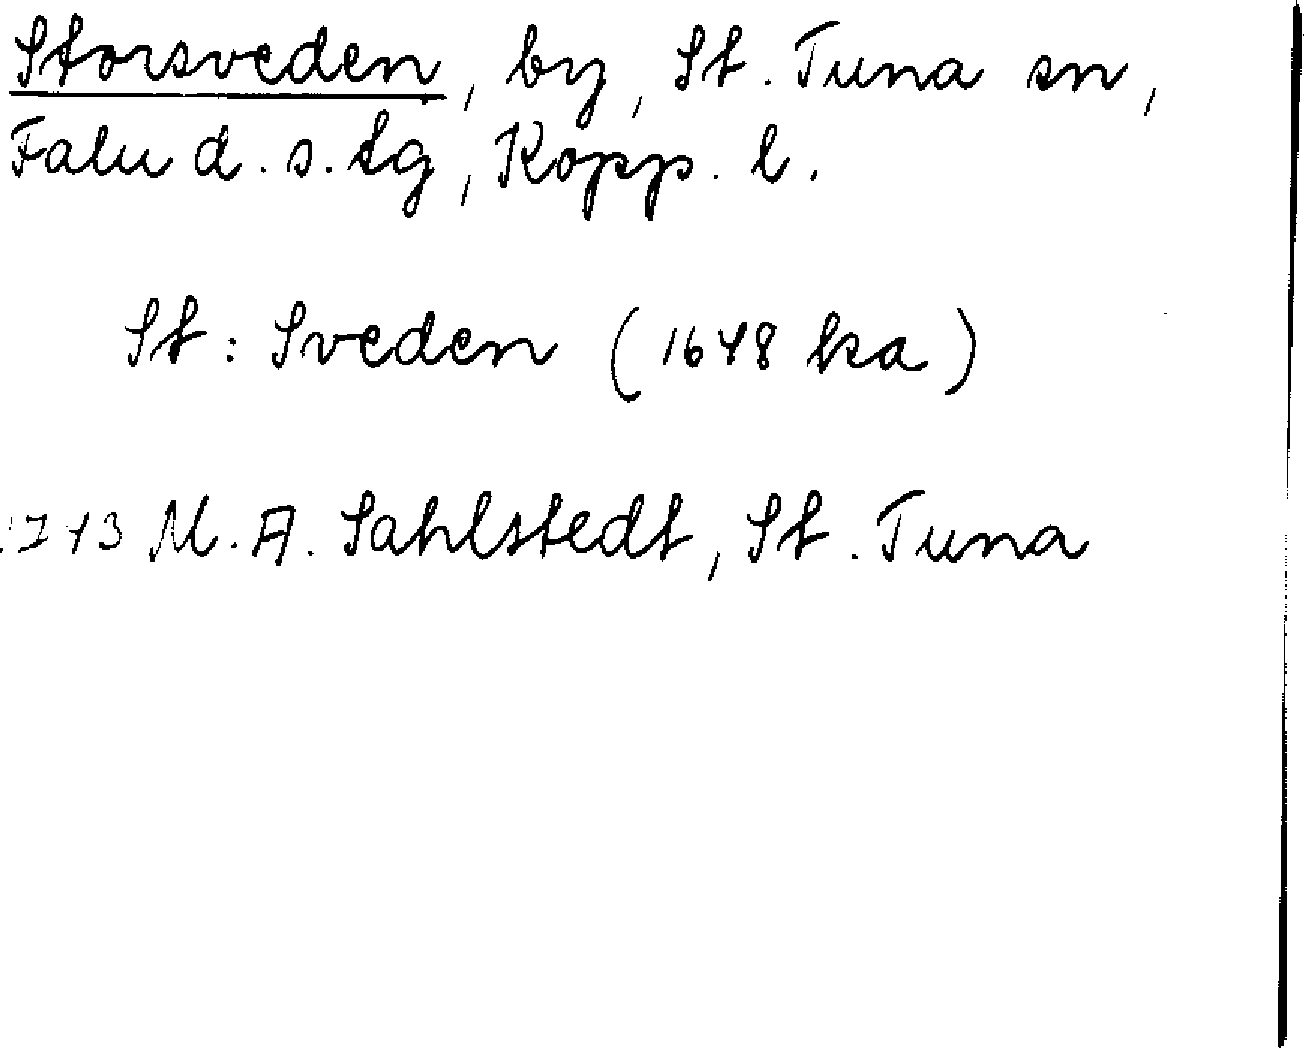 Storsveden, by, St. Tuna sn,
Falu d. s. tg, Kopp. l.
St: Sveden (1648 ka)
1743 M. A. Sahlstedt, St. Tuna